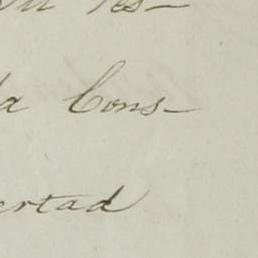 res-
a Cons-
ertad